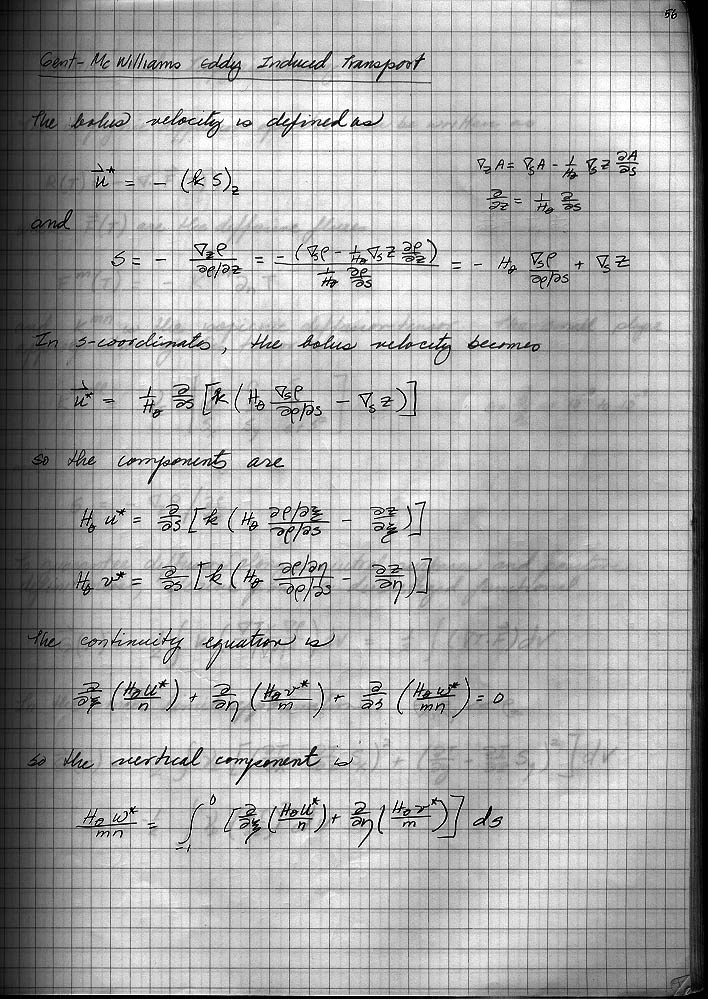 56
Gent-McWilliams Eddy Induced Transport
The bolus velocity is defined as
∇_z A = ∇_s A - 1/H_θ ∇_s z ∂A/∂s
u⃗* = - (k S)_z
∂/∂z = 1/H_θ ∂/∂s
and
S = - ∇_z ρ / ∂ρ/∂z = -(∇_s ρ - 1/H_θ ∇_s z ∂ρ/∂z) / 1/H_θ ∂ρ/∂s = - H_θ ∇_s ρ / ∂ρ/∂s + ∇_s z
In s-coordinates, the bolus velocity becomes
u⃗* = 1/H_θ ∂/∂s [k (H_θ ∇_s ρ / ∂ρ/∂s - ∇_s z)]
so the components are
H_θ u* = ∂/∂s [k (H_θ ∂ρ/∂ξ / ∂ρ/∂s - ∂z/∂ξ)]
H_θ v* = ∂/∂s [k (H_θ ∂ρ/∂η / ∂ρ/∂s - ∂z/∂η)]
The continuity equation is
∂/∂ξ (H_θ u*/n) + ∂/∂η (H_θ v*/m) + ∂/∂s (H_θ w*/mn) = 0
so the vertical component is
H_θ w*/mn = ∫_{-1}^{0} [∂/∂ξ (H_θ u*/n) + ∂/∂η (H_θ v*/m)] ds